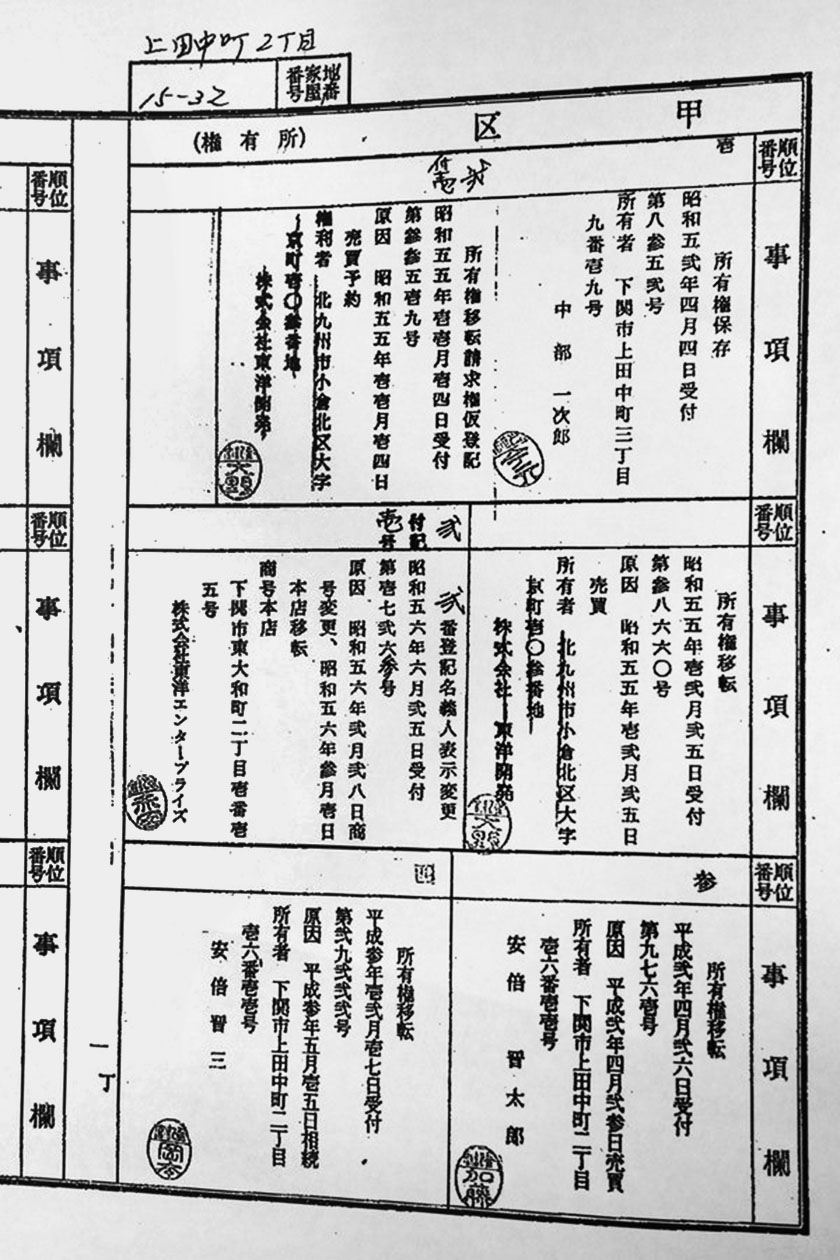 上田中町2丁目
地番
家屋
番号
15-32
甲区
(所有権)
順位番号
事項欄
壱
所有権保存
昭和五弐年四月四日受付
第八参五弐号
所有者 下関市上田中町三丁目
九番壱九号
中部一次郎
弐
付壱
所有権移転請求権仮登記
昭和五五年壱壱月壱四日受付
第参参五壱九号
原因 昭和五五年壱壱月壱四日
売買予約
権利者 北九州市小倉北区大字
京町壱〇参番地
株式会社東洋開発
順位番号
事項欄
所有権移転
昭和五五年壱弐月弐五日受付
第参八六六〇号
原因 昭和五五年壱弐月弐五日
売買
所有者 北九州市小倉北区大字
京町壱〇参番地
株式会社東洋開発
弐
付記
壱号
弐番登記名義人表示変更
昭和五六年六月弐五日受付
第壱七弐六参号
原因 昭和五六年弐月弐八日商
号変更、昭和五六年参月壱日
本店移転
商号本店
下関市東大和町二丁目壱番壱
五号
株式会社東洋エンタープライズ
順位番号
事項欄
参
所有権移転
平成弐年四月弐六日受付
第九七六壱号
原因 平成弐年四月弐参日売買
所有者 下関市上田中町二丁目
壱六番壱壱号
安倍晋太郎
加藤
四
所有権移転
平成参年壱弐月壱七日受付
第弐九弐弐弐号
原因 平成参年五月壱五日相続
所有者 下関市上田中町二丁目
壱六番壱壱号
安倍晋三
一丁
順位番号
事項欄
順位番号
事項欄
順位番号
事項欄